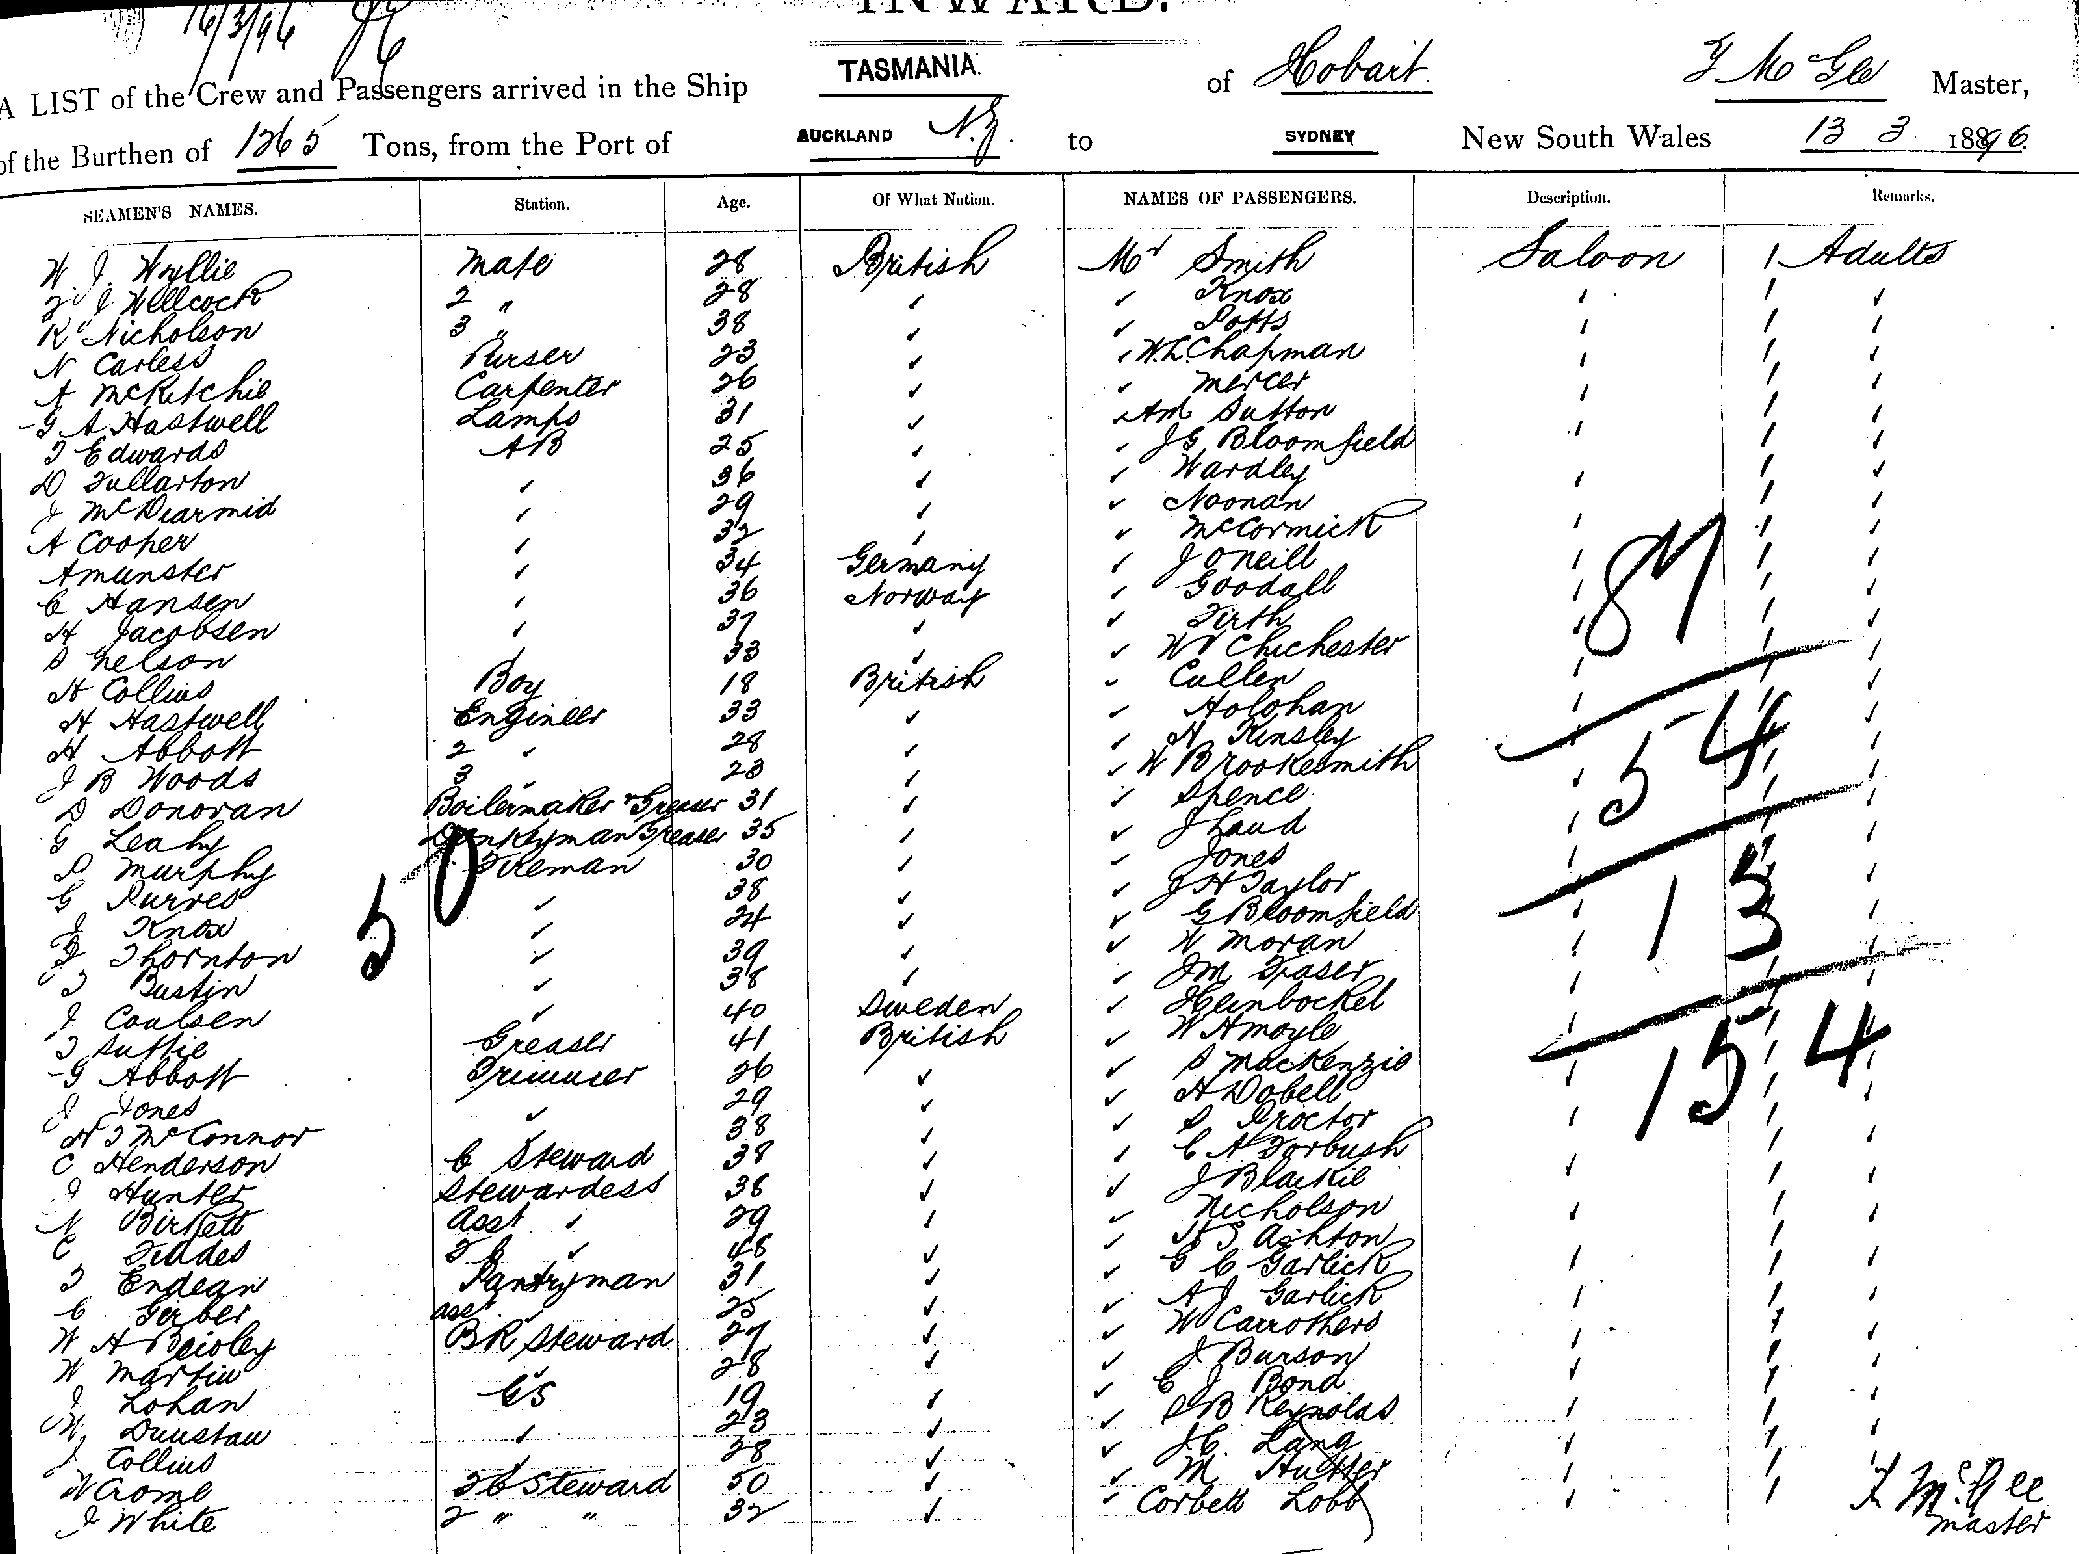 INWARD.
16/3/96
A LIST of the Crew and Passengers arrived in the Ship TASMANIA. of Hobart Master,
of the Burthen of 1265 Tons, from the Port of AUCKLAND N.Z. to SYDNEY New South Wales 13 3 1896
SEAMEN'S NAMES. Station. Age. Of What Nation. NAMES OF PASSENGERS. Description. Remarks.
W. J. Wyllie Mate 28 British Mr Smith Saloon 1 Adults
J Wellcock 2 " 28 ✓ ✓ Knox
R Nicholson 3 " 38 ✓ ✓ Potts
N Carless Purser 23 ✓ ✓ W.L. Chapman
A McRitchie Carpenter 26 ✓ ✓ Mercer
G A Hastwell Lamps 31 ✓ ✓ AM Sutton
T Edwards AB 25 ✓ ✓ JG Bloomfield
D Fullarton ✓ 36 ✓ ✓ Wardley
J McDiarmid ✓ 29 ✓ ✓ Noonan
A Cooper ✓ 32 ✓ ✓ McCormick
A Munster ✓ 34 Germany ✓ J O Neill
C Hansen ✓ 36 Norway ✓ Goodall
H Jacobsen ✓ 37 ✓ ✓ Firth
Nelson ✓ 33 ✓ ✓ Chichester
H Collins Boy 18 British ✓ Cullen
H Hastwell Engineer 33 ✓ ✓ Holohan
H Abbott 2 ✓ 28 ✓ ✓ H Kinsley
J B Woods 3 ✓ 23 ✓ ✓ W Brookesmith
D Donovan Boilermaker & Greaser 31 ✓ ✓ Spence
G Leahy Donkeyman Greaser 35 ✓ ✓ J Laud
P Murphy Fireman 30 ✓ ✓ Jones
G Purves ✓ 38 ✓ ✓ J H Taylor
J Knox ✓ 24 ✓ ✓ G Bloomfield
Thornton ✓ 39 ✓ ✓ W Moran
T Bustin ✓ 38 ✓ ✓ JM Fraser
J Coalsen ✓ 40 Sweden ✓ Heinbockel
T Suttie Greaser 41 British ✓ W A Moyle
G Abbott Trimmer 26 ✓ ✓ S Mackenzie
J Jones ✓ 29 ✓ ✓ H Dobell
H T McConnor ✓ 38 ✓ ✓ S Proctor
C Henderson C Steward 38 ✓ ✓ C A Forbush
J Hunter Stewardess 38 ✓ ✓ J Blackie
N Birkett Asst ✓ 29 ✓ ✓ Nicholson
C Fiddes ✓ 48 ✓ ✓ Ashton
T Endean Pantryman 31 ✓ ✓ G C Garlick
C Gerber asst ✓ 25 ✓ ✓ A J Garlick
W A Beioley BR Steward 27 ✓ ✓ W Carrothers
W Martin ✓ 28 ✓ ✓ J Burson
J Lohan GS 19 ✓ ✓ C J Bond
W Dunstan ✓ 23 ✓ ✓ Reynolds
J Collins ✓ 28 ✓ ✓ J.C. Lang
W Crome 2C Steward 50 ✓ ✓ M Hutter
J White 2 " " 32 ✓ ✓ Corbett Lobb
50
87
54
13
154
McGee
Master